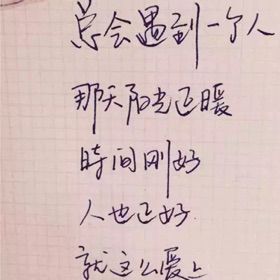 总会遇到一个人
那天阳光正暖
時间刚好
人也正好.
就这么爱上